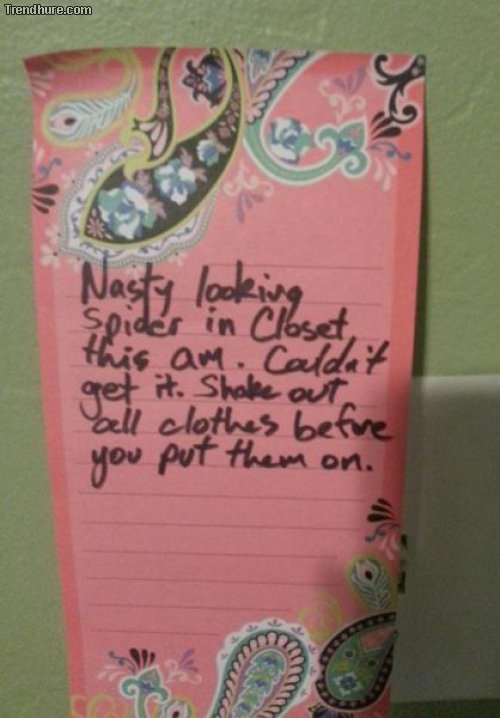 Trendhure.com
Nasty looking
Spider in Closet
this am. Couldn't
get it. Shake out
all clothes before
you put them on.